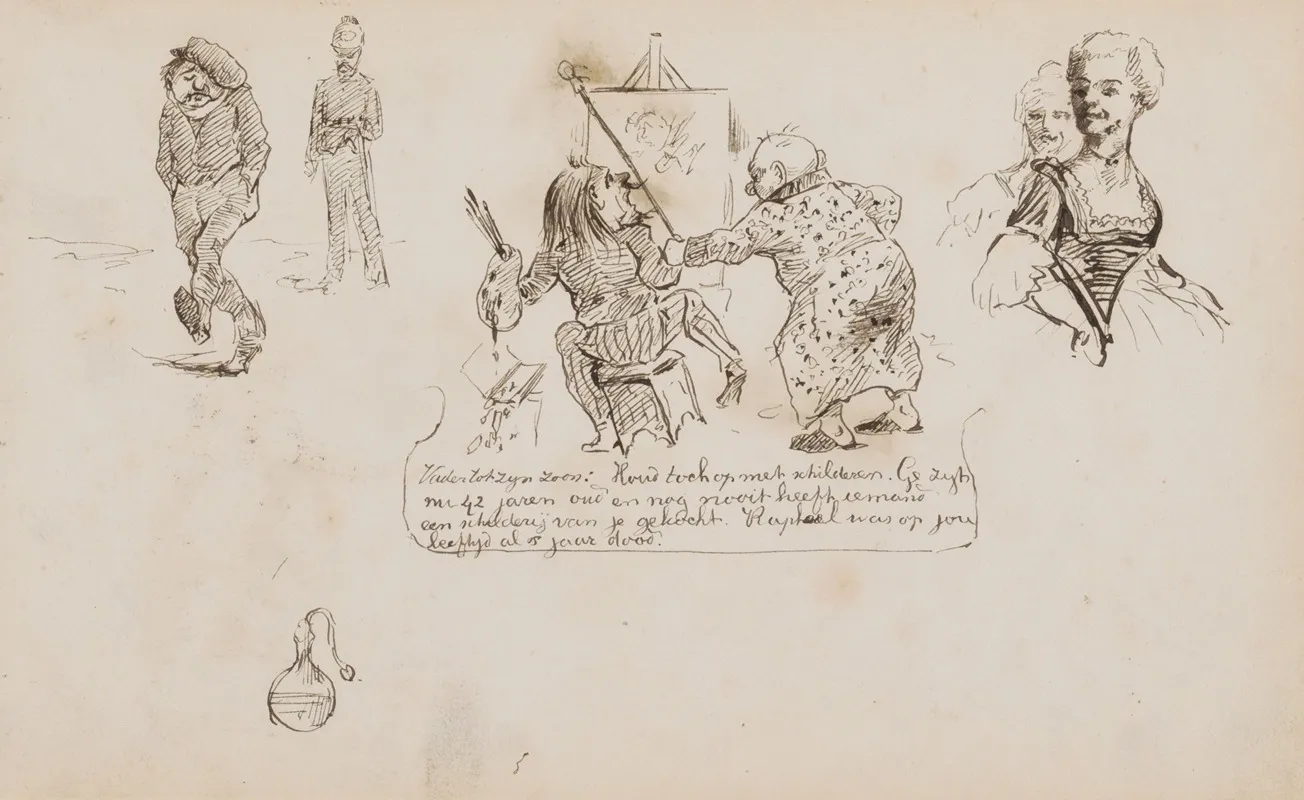 Vader tot zyn zoon: Houd toch op met schilderen. Ge zyt
nu 42 jaren oud en nog nooit heeft iemand
een schilderij van je gekocht. Raphael was op jou
leeftyd al 5 jaar dood.